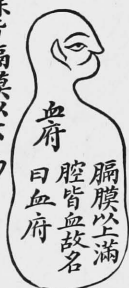 血府
膈膜以上滿
腔皆血故名
曰血府